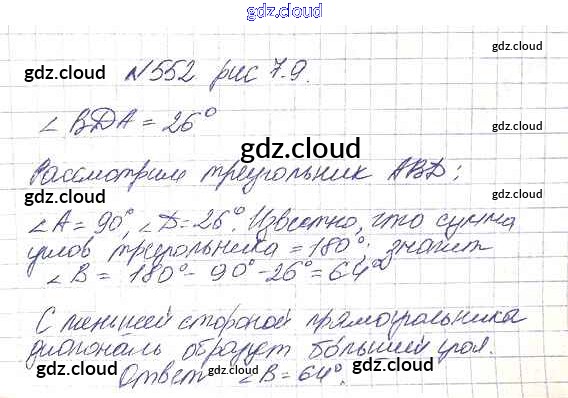 gdz.cloud
gdz.cloud №552 рис 7.9. gdz.cloud
∠ВДА = 26°
gdz.cloud
Рассмотрим треугольник АВД:
∠A = 90°, ∠Д = 26°. Известно, что сумма
gdz.cloud gdz.cloud
углов треугольника = 180°. значит
∠В = 180° - 90° - 26° = 64°
gdz.cloud
С меньшей стороной прямоугольника
диагональ образует больший угол.
gdz.cloud Ответ ∠В = 64°. gdz.cloud